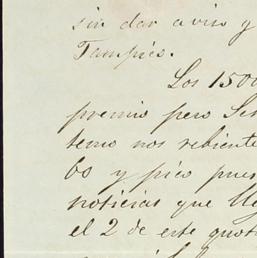 sin dar aviso y
Tampico.
Los 150
premio pero Se
temo nos rebiente
60 y pico pues
noticias que lle
el 2 de este quot